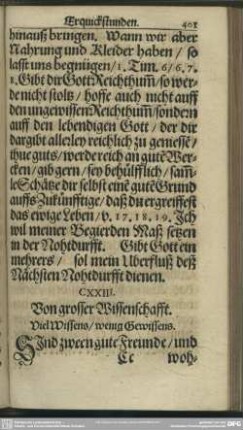 Erquickstunden. 401
hinauß bringen. Wann wir aber
Nahrung und Kleider haben / so
lasst uns begnügen / 1. Tim. 6 / 6. 7.
1. Gibt dir Gott Reichthum̃ / so wer-
de nicht stoltz / hoffe auch nicht auff
den ungewissen Reichthum̃ / sondern
auff den lebendigen Gott / der dir
dargibt allerley reichlich zu geniessẽ /
thue guts / werde reich an gutẽ Wer-
cken / gib gern / sey behülfflich / sam̃-
le Schätze dir selbst eine gutẽ Grund
auffs Zukünfftige / daß du ergreiffest
das ewige Leben / v. 17. 18. 19. Ich
wil meiner Begierden Maß setzen
in der Nohtdurfft. Gibt Gott ein
mehrers / sol mein Uberfluß deß
Nächsten Nohtdurfft dienen.
CXXIII.
Von grosser Wissenschafft.
Viel Wissens / wenig Gewissens.
Sind zween gute Freunde / und
Cc woh-